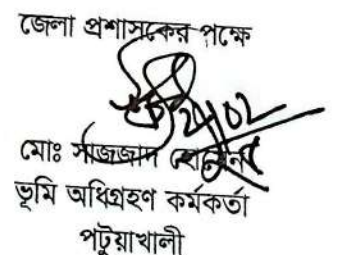 জেলা প্রশাসকের পক্ষে
মোঃ সাজ্জাদ হোসেন
ভূমি অধিগ্রহণ কর্মকর্তা
পটুয়াখালী